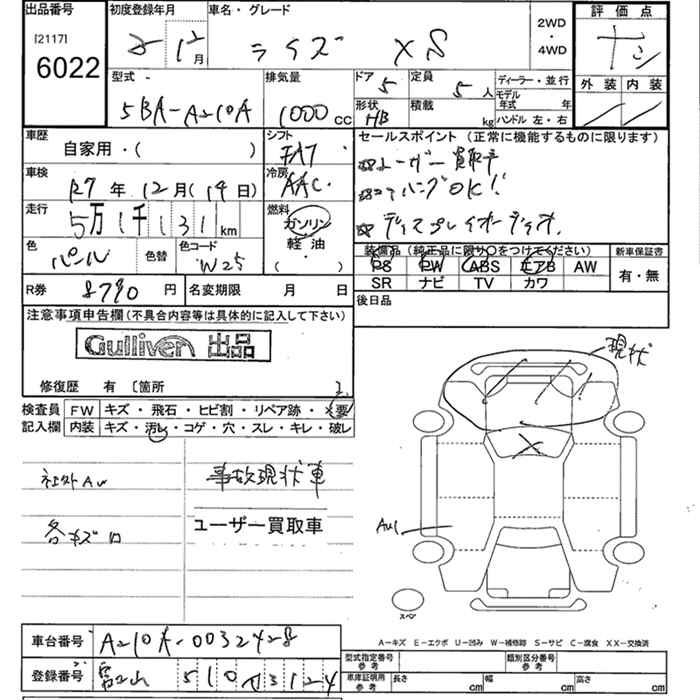 出品番号
[2117]
6022
初度登録年月
2 12月
車名・グレード
ライズ XS
2WD
・
4WD
評価点
ナシ
外装 内装
型式
5BA-A210A
排気量
1000 CC
ドア
5
定員
5 人
形状
HB
積載
kg
ディーラー・並行
モデル
年式 年
ハンドル 左・右
車歴
自家用・( )
シフト
FAT
セールスポイント (正常に機能するものに限ります)
ユーザー買取車
ハングOK!
ディスプレイオーディオ.
車検
R7年 12月(19日)
冷房
AAC
走行
5万1千131 km
燃料
ガソリン
軽油・
( )
色
パール
色替
色コード
W25
装備品 (純正品に限り○をつけてください)
PS PW ABS エアB AW
SR ナビ TV カワ
新車保証書
有・無
R券 8790 円
名変期限 月 日
後日品
注意事項申告欄(不具合内容等は具体的に記入して下さい)
Gulliver 出品
修復歴 有 〔箇所
検査員
記入欄
FW キズ・飛石・ヒビ割・リペア跡・×要
内装 キズ・汚レ・コゲ・穴・スレ・キレ・破レ
現状
社外AW
事故現状車
各キズ凹
ユーザー買取車
AU1
スペア
A-キズ E-エクボ U-凹み W-補修跡 S-サビ C-腐食 XX-交換済
車台番号 A210A-0032428
登録番号 富山 510 3124
型式指定番号
参考
類別区分番号
参考
車庫証明用
参考
長さ cm
幅 cm
高さ cm